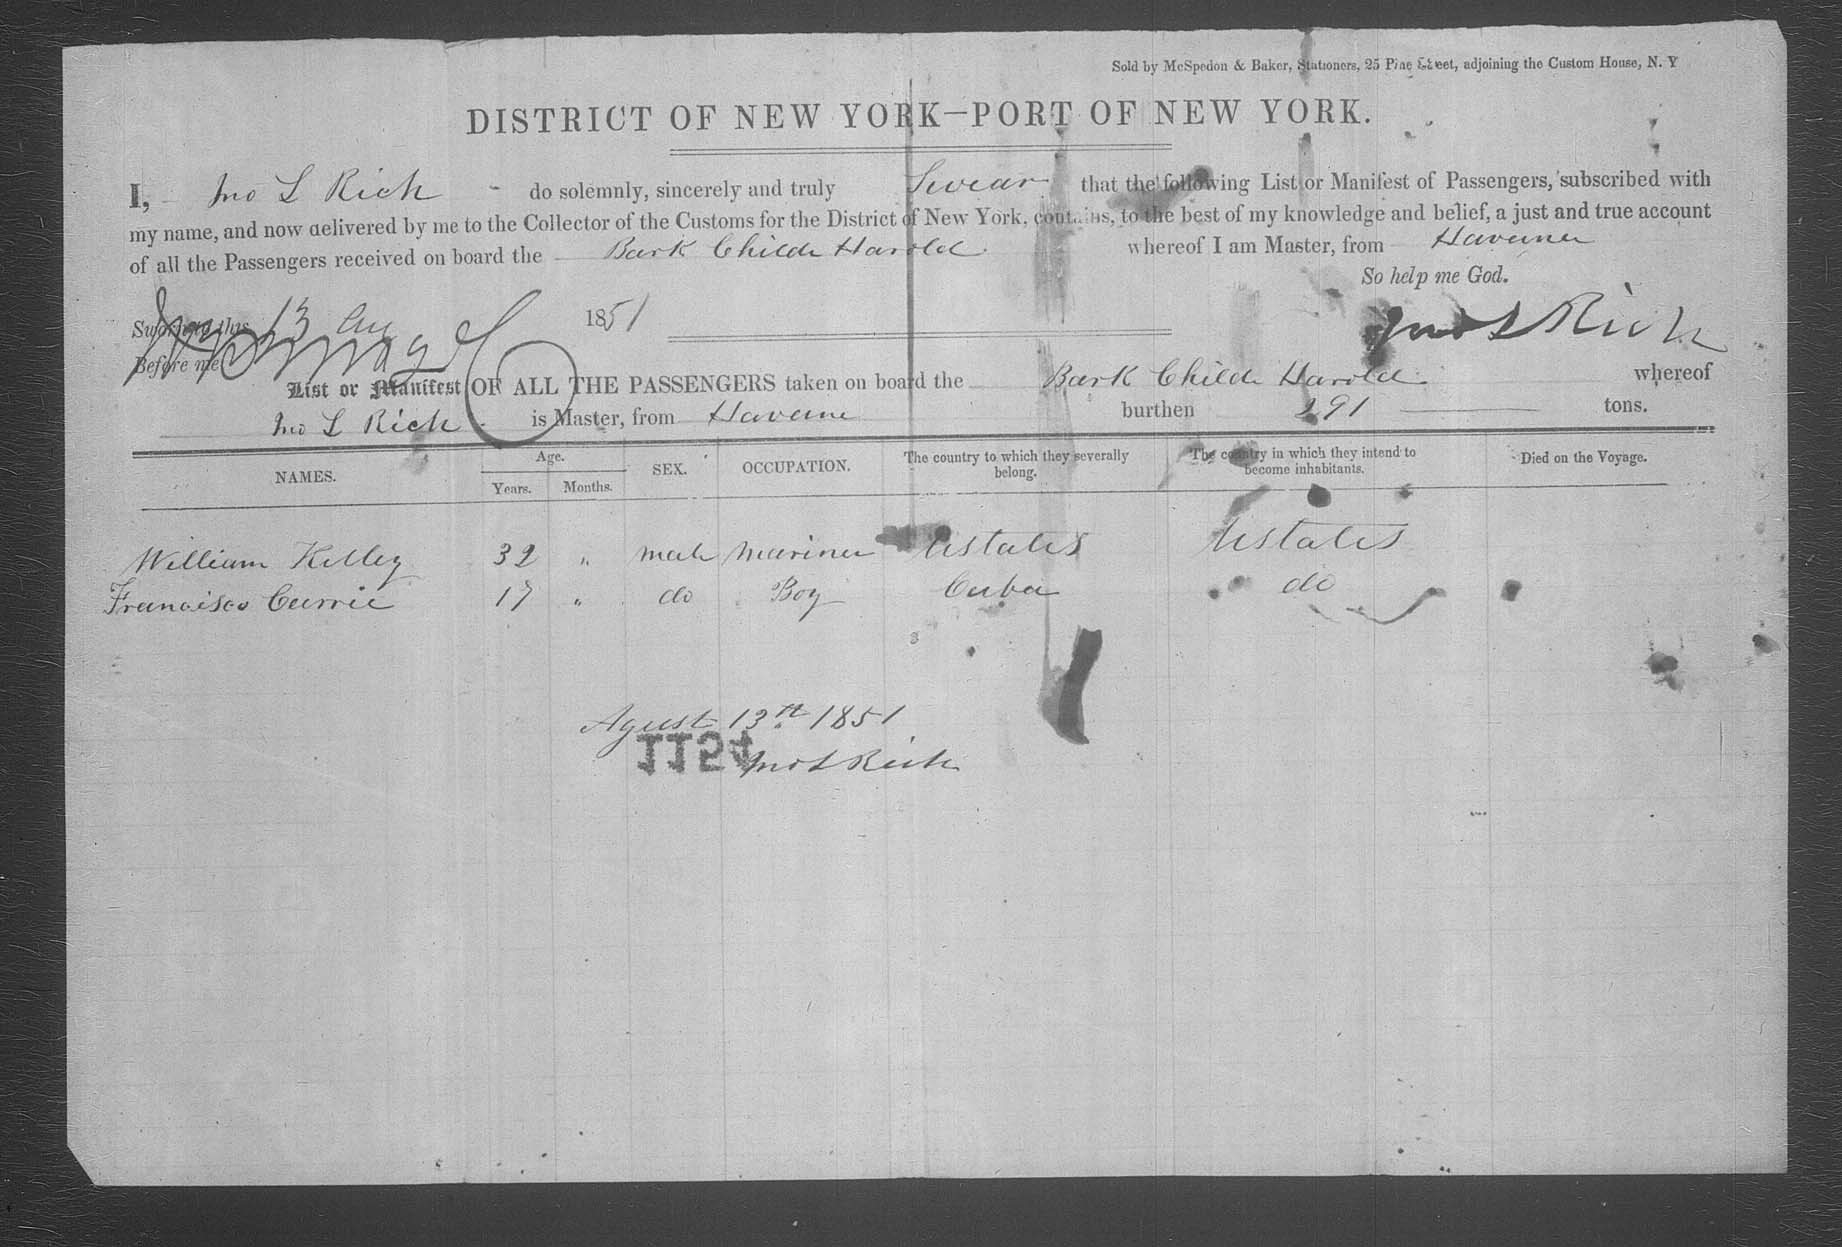 Sold by McSpedon & Baker, Stationers, 25 Pine Street, adjoining the Custom House, N. Y
DISTRICT OF NEW YORK—PORT OF NEW YORK.
I, Jno L Rich do solemnly, sincerely and truly Swear that the following List or Manifest of Passengers, subscribed with
my name, and now delivered by me to the Collector of the Customs for the District of New York, contains, to the best of my knowledge and belief, a just and true account
of all the Passengers received on board the Bark Childe Harold whereof I am Master, from Havanna
So help me God.
Sworn to this 13 Aug 1851
Jno L Rich
Before me
List or Manifest OF ALL THE PASSENGERS taken on board the Bark Childe Harold whereof
Jno L Rich is Master, from Havana burthen 291 tons.
NAMES. Age. Years. Months. SEX. OCCUPATION. The country to which they severally belong. The country in which they intend to become inhabitants. Died on the Voyage.
William Kelley 32 " male mariner Ustates Ustates
Francisco Currie 17 " do Boy Cuba do
Agust 13th 1851
1154
Jno L Rich